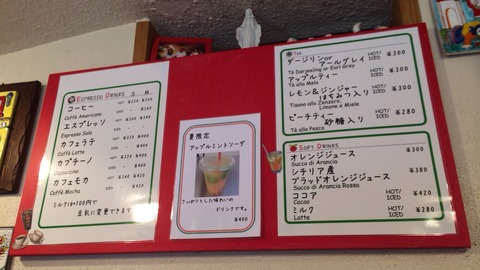 ESPRESSO DRINKS S M
コーヒー
Caffé Americano
エスプレッソ
Espresso Solo
カフェラテ
Caffé Latte
カプチーノ
Cappuccino
カフェモカ
Caffé Mocha
ミルクは+100円で
豆乳に変更できます
夏限定
アップルミントソーダ
さっぱりとした味わいの
ドリンクです。
¥400
TEA
ダージリンor
アールグレイ HOT/ICED ¥300
Té Darjeeling or Earl Grey
アップルティー HOT/ICED ¥300
Té alla Mela
レモン&ジンジャー
はちみつ入り HOT/ICED ¥300
Tisana allo Zenzero,
Limone e Miele
ピーチティー
砂糖入り ICED ¥280
Té alla Pesca
SOFT DRINKS
オレンジジュース ¥300
Succo di Arancia
シチリア産
ブラッドオレンジジュース ¥380
Succo di Arancia Rossa
ココア HOT/ICED ¥420
Cacao
ミルク HOT/ICED ¥280
Latte